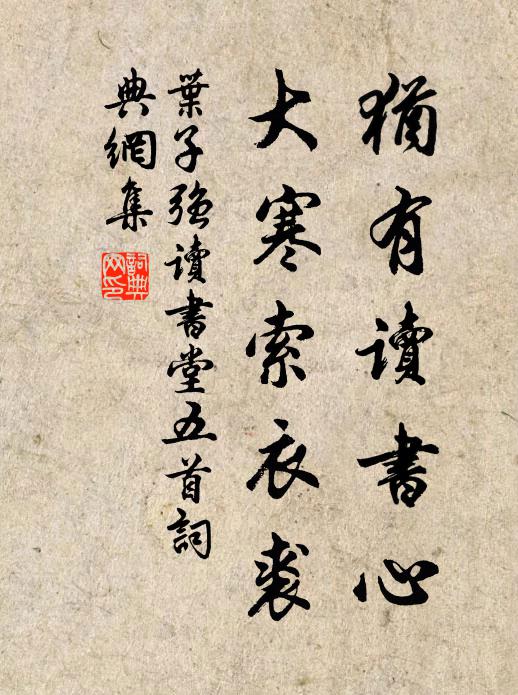 猶有讀書心
大寒索衣裘
葉子強讀書堂五首詞
典網集
詞典
网印